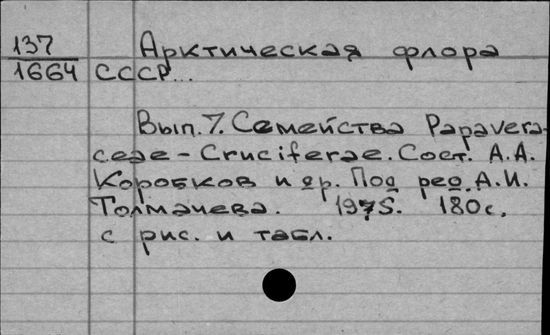 137 Арктическая флора
1664 СССР...
Вып. 7. Семейства Papavera-
ceae - Cruciferae. Сост. А.А.
Коробков и др. Под ред. А.И.
Толмачева. 1975. 180с.
с рис. и табл.